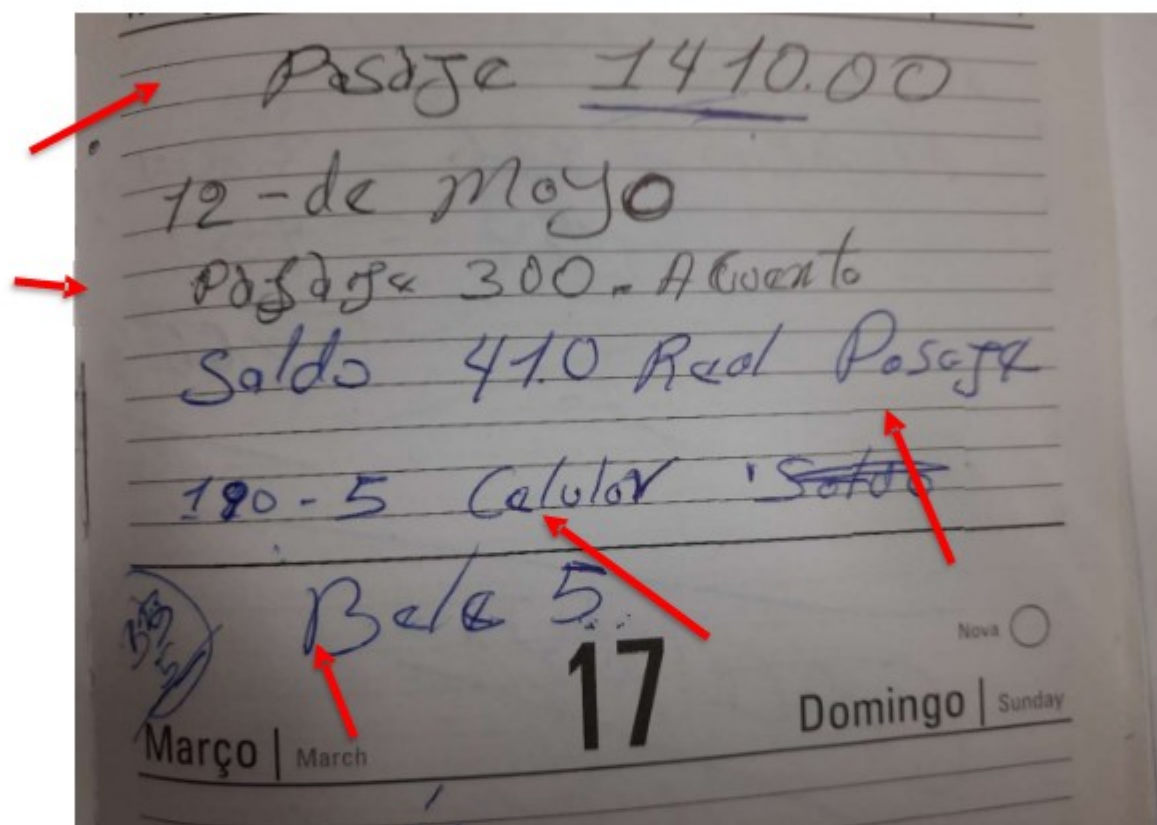 Pasaje 1410.00
12-de Mayo
Pasaje 300.- Acuenta
Saldo 410 Real Pasaje
190-5 Celular Saldo
Bele 5
17
Nova
Março | March
Domingo | Sunday